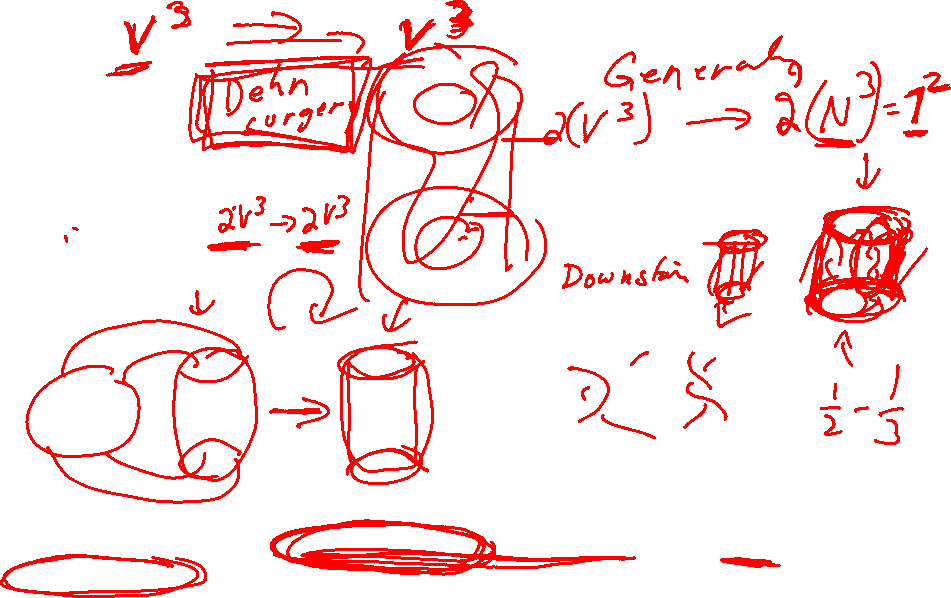 V³ → V³
Dehn
surger
Generaly
2(V³) → 2(N³) = T²
2V³ → 2V³
Downstair
1/2 - 1/3